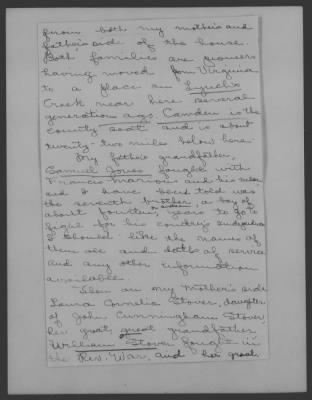 from both my mother's and
father's side of the house.
Both families are pioneers
having moved from Virginia
to a place on Lynch's
Creek near here several
generation ago. Camden is the
county seat and is about
twenty-two miles below here.
My father's grandfather,
Samuel Jones fought with
Francis Marion and his
and I have been told was
the seventh brother, a boy of
about fourteen years to go to
fight for his country's
I should like the names of
them all and dates of service
and any other information
available.
Then on my Mother's side
Laura Cornelia Stover, daughter
of John Cunningham Stover,
her great, great grandfather
William Stover fought in
the Rev. War, and her great-